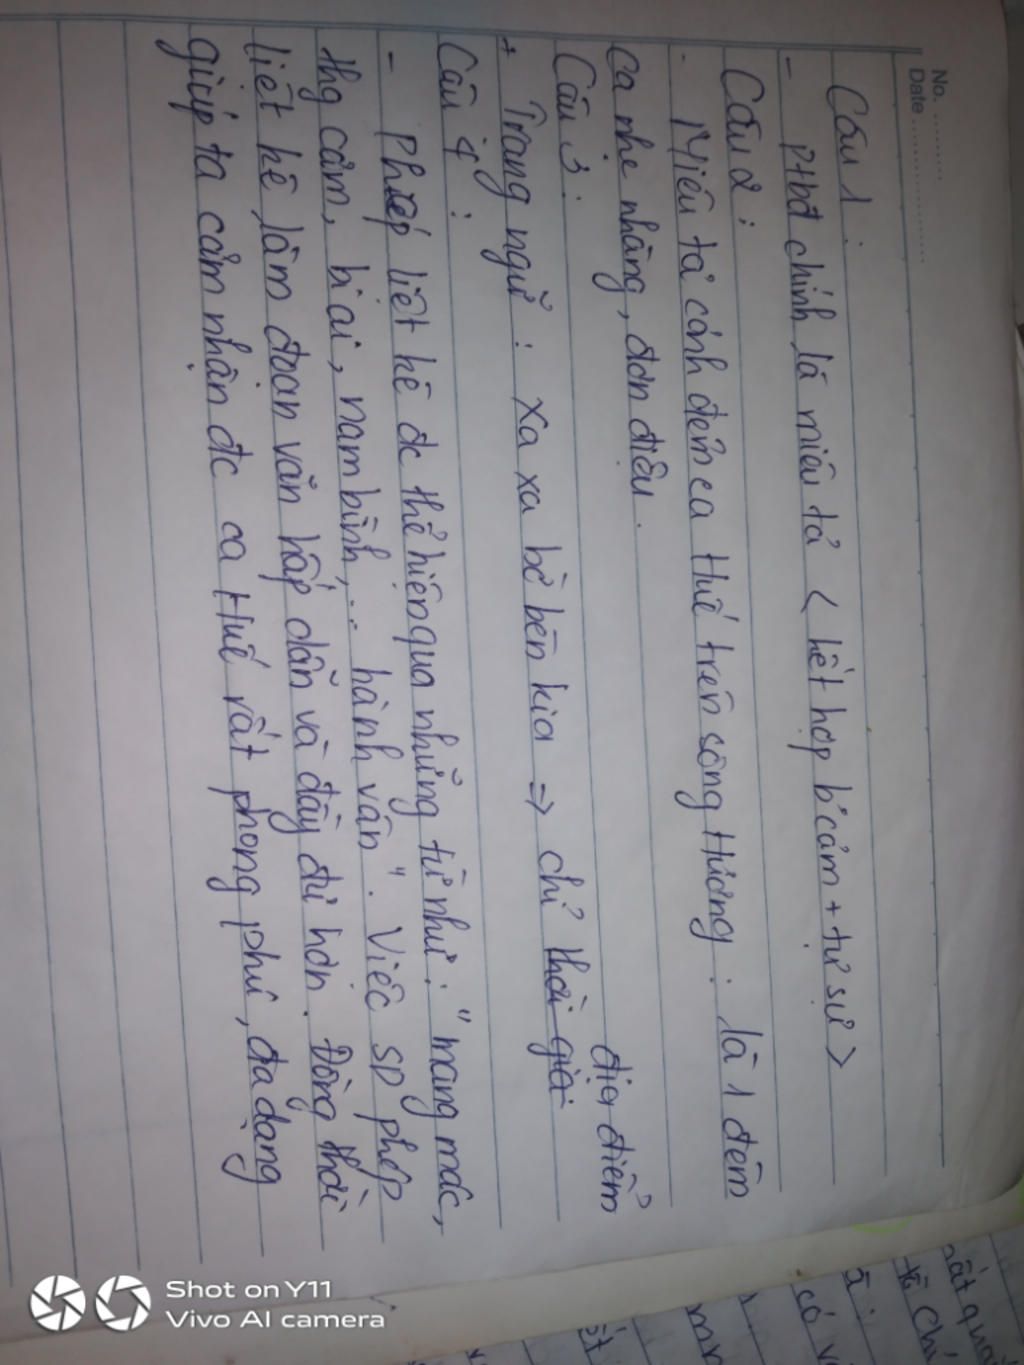 No. ............
Date ....................
Câu 1:
- ptbđ chính là miêu tả < kết hợp b'cảm + tự sự >
Câu 2:
- Miêu tả cảnh đêm ca Huế trên sông Hương: là 1 đêm
ca nhẹ nhàng, đơn điệu.
Câu 3:
địa điểm
+ Trạng ngữ: xa xa bờ bên kia => chỉ thời gia
Câu 4:
- Phép liệt kê đc thể hiện qua những từ như: "mang mác,
thg cảm, bi ai, nam bình,... hành vân". Việc sd phép
liệt kê làm đoạn văn hấp dẫn và đầy đủ hơn. Đồng thời
giúp ta cảm nhận đc ca Huế rất phong phú, đa dạng
Shot on Y11
Vivo AI camera